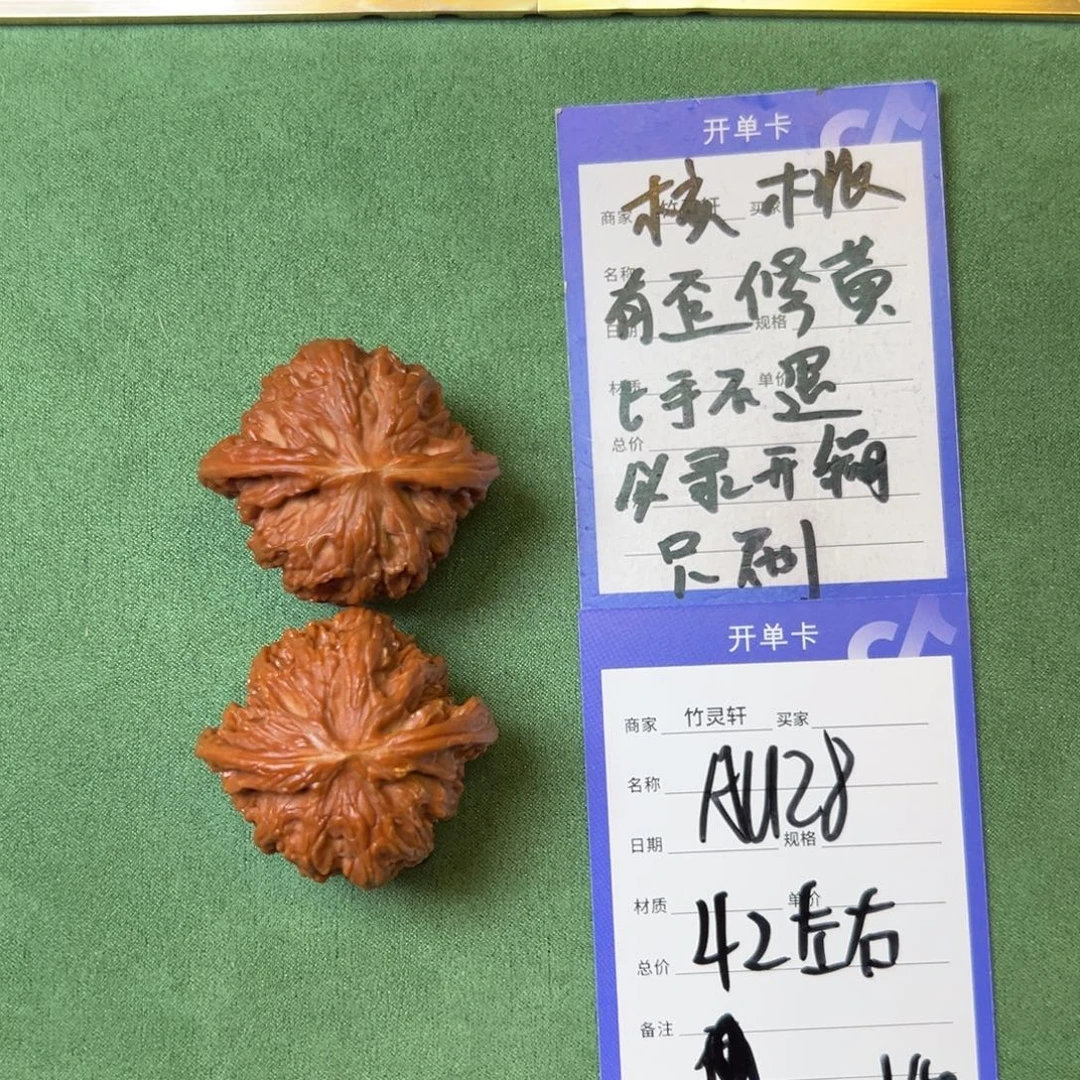 开单卡
核桃
商家 竹灵轩 买家
名称
有歪修黄
日期 规格
上手不退
材质 单价
总价
必录开箱
只刷
开单卡
商家 竹灵轩 买家
名称
AU28
日期 规格
材质 单价
42左右
总价
备注